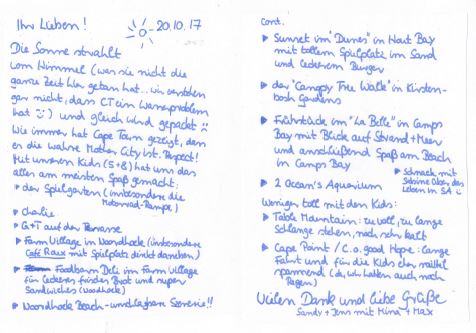 Ihr Lieben!
20.10.17
Die Sonne strahlt
vom Himmel (was sie nicht die
ganze Zeit hier getan hat... wir verstehen
gar nicht, dass CT ein Wasserproblem
hat) und gleich wird gepackt
Wie immer hat Cape Town gezeigt, dass
er die wahre Mother City ist. Respect!
Mit unseren Kids (5+8) hat uns das
alles am meisten Spaß gemacht:
der Spielgarten (insbesondere die
Motorrad-Rampe)
Charlie
G+T auf der Terrasse
Farm Village in Noordhoek (insbesondere
Café Roux mit Spielplatz direkt daneben)
Foodbarn Deli im Farm Village
für leckeres frisches Brot und super
Sandwiches (Noordhoek)
Noordhoek Beach - unschlagbare Szenerie!!
cont.
Sunset im "Dunes" in Hout Bay
mit tollem Spielplatz im Sand
und leckerem Burger
der "Canopy Tree Walk" in Kirsten-
bosh Gardens
Frühstück im "La Belle" in Camps
Bay mit Blick auf Strand + Meer
und anschließend Spaß am Beach
in Camps Bay
Schnack mit
Sabine über das
Leben in SA
2 Ocean's Aquarium
Weniger toll mit den Kids:
Table Mountain: zu voll, zu lange
Schlange stehen, noch sehr kalt
Cape Point / C.o.good Hope: lange
Fahrt und für die Kids eher mittel
spannend (ok, wir hatten auch noch
Regen)
Vielen Dank und liebe Grüße
Sandy + Jens mit Mina + Max